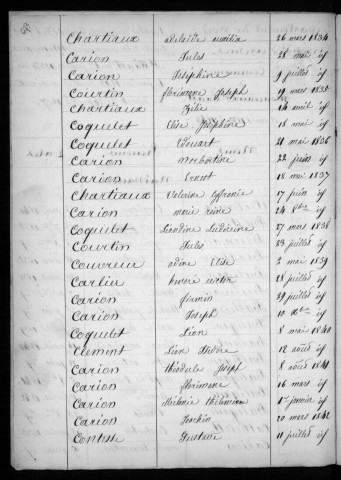 Chartiaux adelaïde 26 mars 1834
Carion Jules 25 mai id
Carion Joséphine 9 juillet id
Courtin florimond Joseph 19 mars 1835
Chartiaux Zélie 14 id
Coquelet Elise Joséphine 18 mai id
Coquelet Edouart 21 mai 1836
Carion 22 juin id
Carion Ernest 18 mai 1837
Chartiaux Valerine 17 juin id
Carion marie reine 24 id
Coquelet Léandine 27 mars 1838
Courtin Jules 23 juillet id
Couvreur Elise 2 mai 1839
Carlier honoré 28 juillet id
Carion firmin 29 juillet id
Carion Joseph 10 id
Coquelet Léon 8 mai 1840
Clément Léon 12 août id
Carion théodule Joseph 8 août 1841
Carion florimond 16 mars id
Carion Mélanie 1er janvier id
Carion Joachin 20 mars 1842
Contesse Gustave 11 juillet id